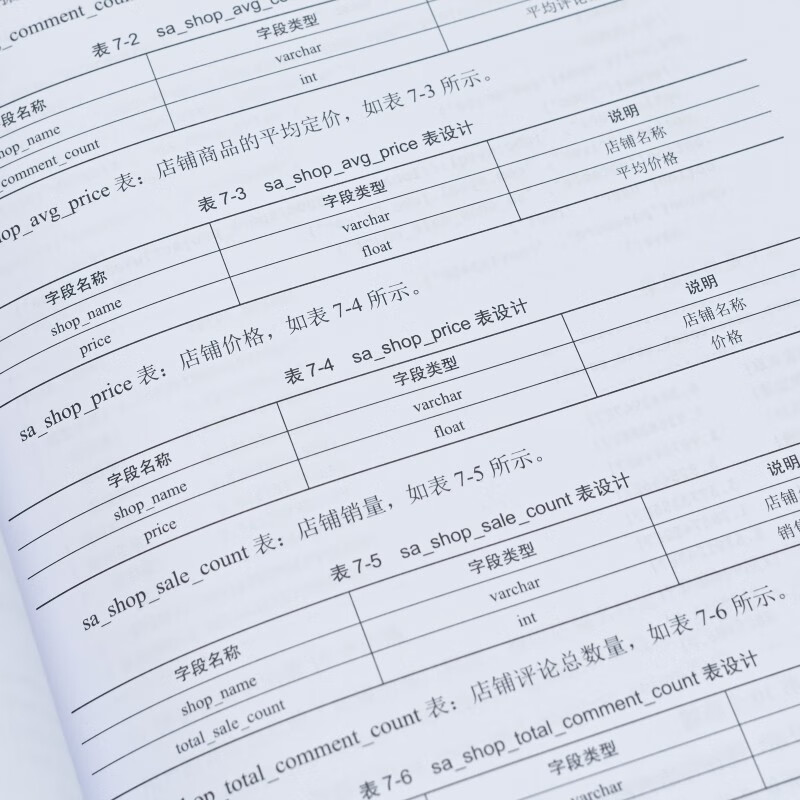 _comment_cou
表 7-2 sa_shop_avg_co
字段名称 字段类型
shop_name varchar
comment_count int 平均评论
shop_avg_price 表：店铺商品的平均定价，如表 7-3 所示。
表 7-3 sa_shop_avg_price 表设计
字段名称 字段类型 说明
shop_name varchar 店铺名称
price float 平均价格
sa_shop_price 表：店铺价格，如表 7-4 所示。
表 7-4 sa_shop_price 表设计
字段名称 字段类型 说明
shop_name varchar 店铺名称
price float 价格
sa_shop_sale_count 表：店铺销量，如表 7-5 所示。
表 7-5 sa_shop_sale_count 表设计
字段名称 字段类型 说明
shop_name varchar 店铺
total_sale_count int 销
shop_total_comment_count 表：店铺评论总数量，如表 7-6 所示。
表 7-6 sa_shop_total_comment_count 表设计
字段类型
varchar